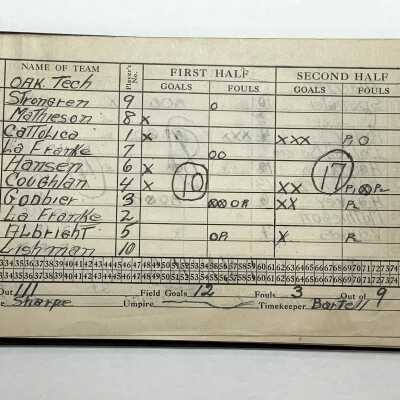 NAME OF TEAM Player's No. FIRST HALF SECOND HALF
OAK Tech GOALS FOULS GOALS FOULS
Strongren 9 O
Mathieson 8 X
Cattolica 1 X XXX XXX P O
La Franke 7 OO
Hansen 6 X
Coughlan 4 X 10 XX 17
Gonbier 3 XX
La Franke 2
Albright 5 X
Lishman 10
34 35 36 37 38 39 40 41 42 43 44 45 46 47 48 49 50 51 52 53 54 55 56 57 58 59 60 61 62 63 64 65 66 67 68 69 70 71 72 73 74
34 35 36 37 38 39 40 41 42 43 44 45 46 47 48 49 50 51 52 53 54 55 56 57 58 59 60 61 62 63 64 65 66 67 68 69 70 71 72 73 74
Out Field Goals 12 Fouls 3 Out of 9
Sharpe Umpire Timekeeper Bartell